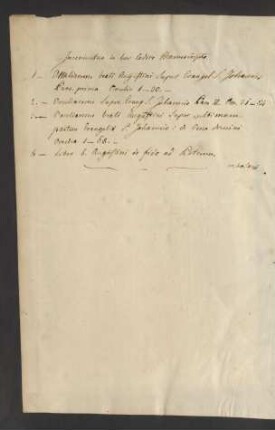 Invenientur in hoc Codice Manuscripto
1.- Omeliarum beati Augustini super Evangel. S. Johannis
Pars prima Omelia 1-
2.- Omeliarum super Evang. S. Johannis Pars II.
3.- Omeliarum beati Augustini super ultimam
partem Evangelii S. Johannis: de Cena domini
Omelia 1-
4.- Liber S. Augustini de fide ad Petrum